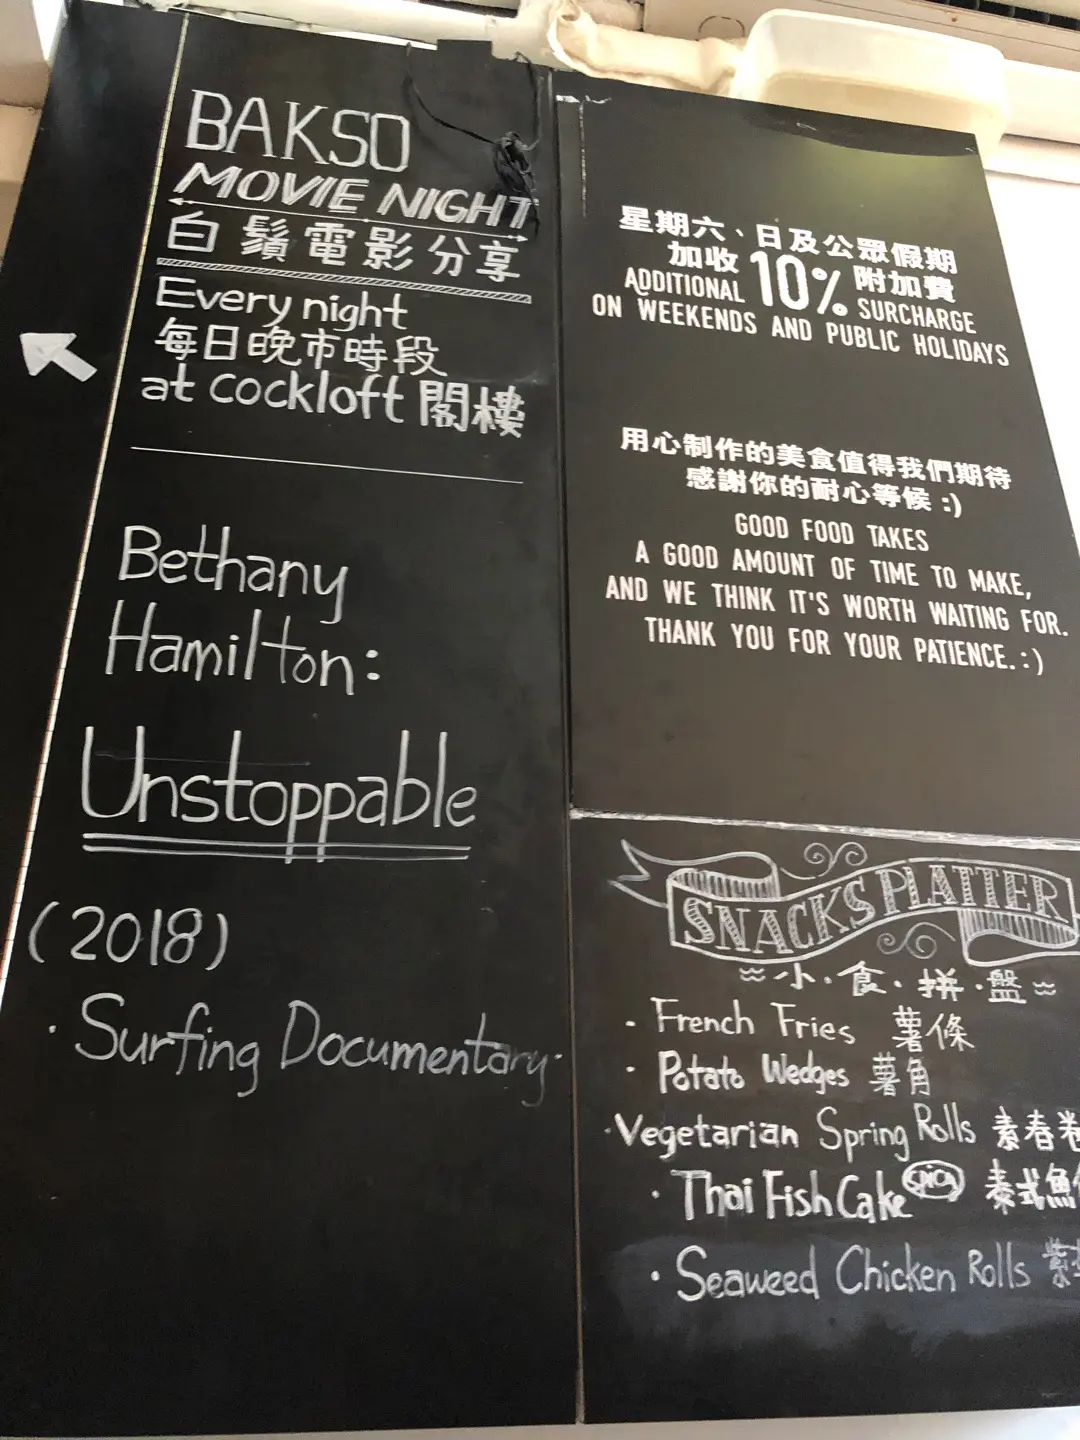 BAKSO
MOVIE NIGHT
白鬚電影分享
Every night
每日晚市時段
at cockloft 閣樓
Bethany
Hamilton:
Unstoppable
(2018)
· Surfing Documentary·
星期六、日及公眾假期
加收 10% 附加費
ADDITIONAL 10% SURCHARGE
ON WEEKENDS AND PUBLIC HOLIDAYS
用心制作的美食值得我們期待
感謝你的耐心等候 :)
GOOD FOOD TAKES
A GOOD AMOUNT OF TIME TO MAKE,
AND WE THINK IT'S WORTH WAITING FOR.
THANK YOU FOR YOUR PATIENCE. :)
SNACKS PLATTER
小·食·拼·盤
· French Fries 薯條
· Potato Wedges 薯角
· Vegetarian Spring Rolls 素春卷
· Thai Fish Cake Spicy 泰式魚
· Seaweed Chicken Rolls 紫